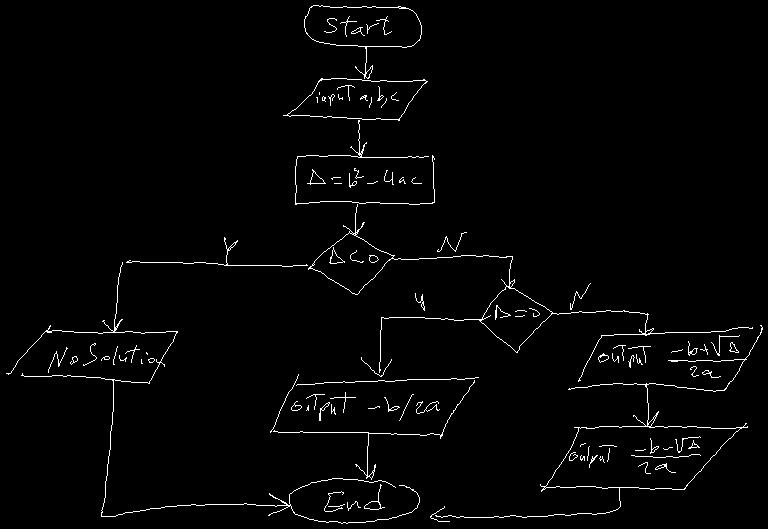 Start
input a,b,c
Δ=b²-4ac
Δ<0
Y
N
Δ=0
y
N
No Solution
output -b/2a
output (-b+√Δ)/2a
output (-b-√Δ)/2a
End